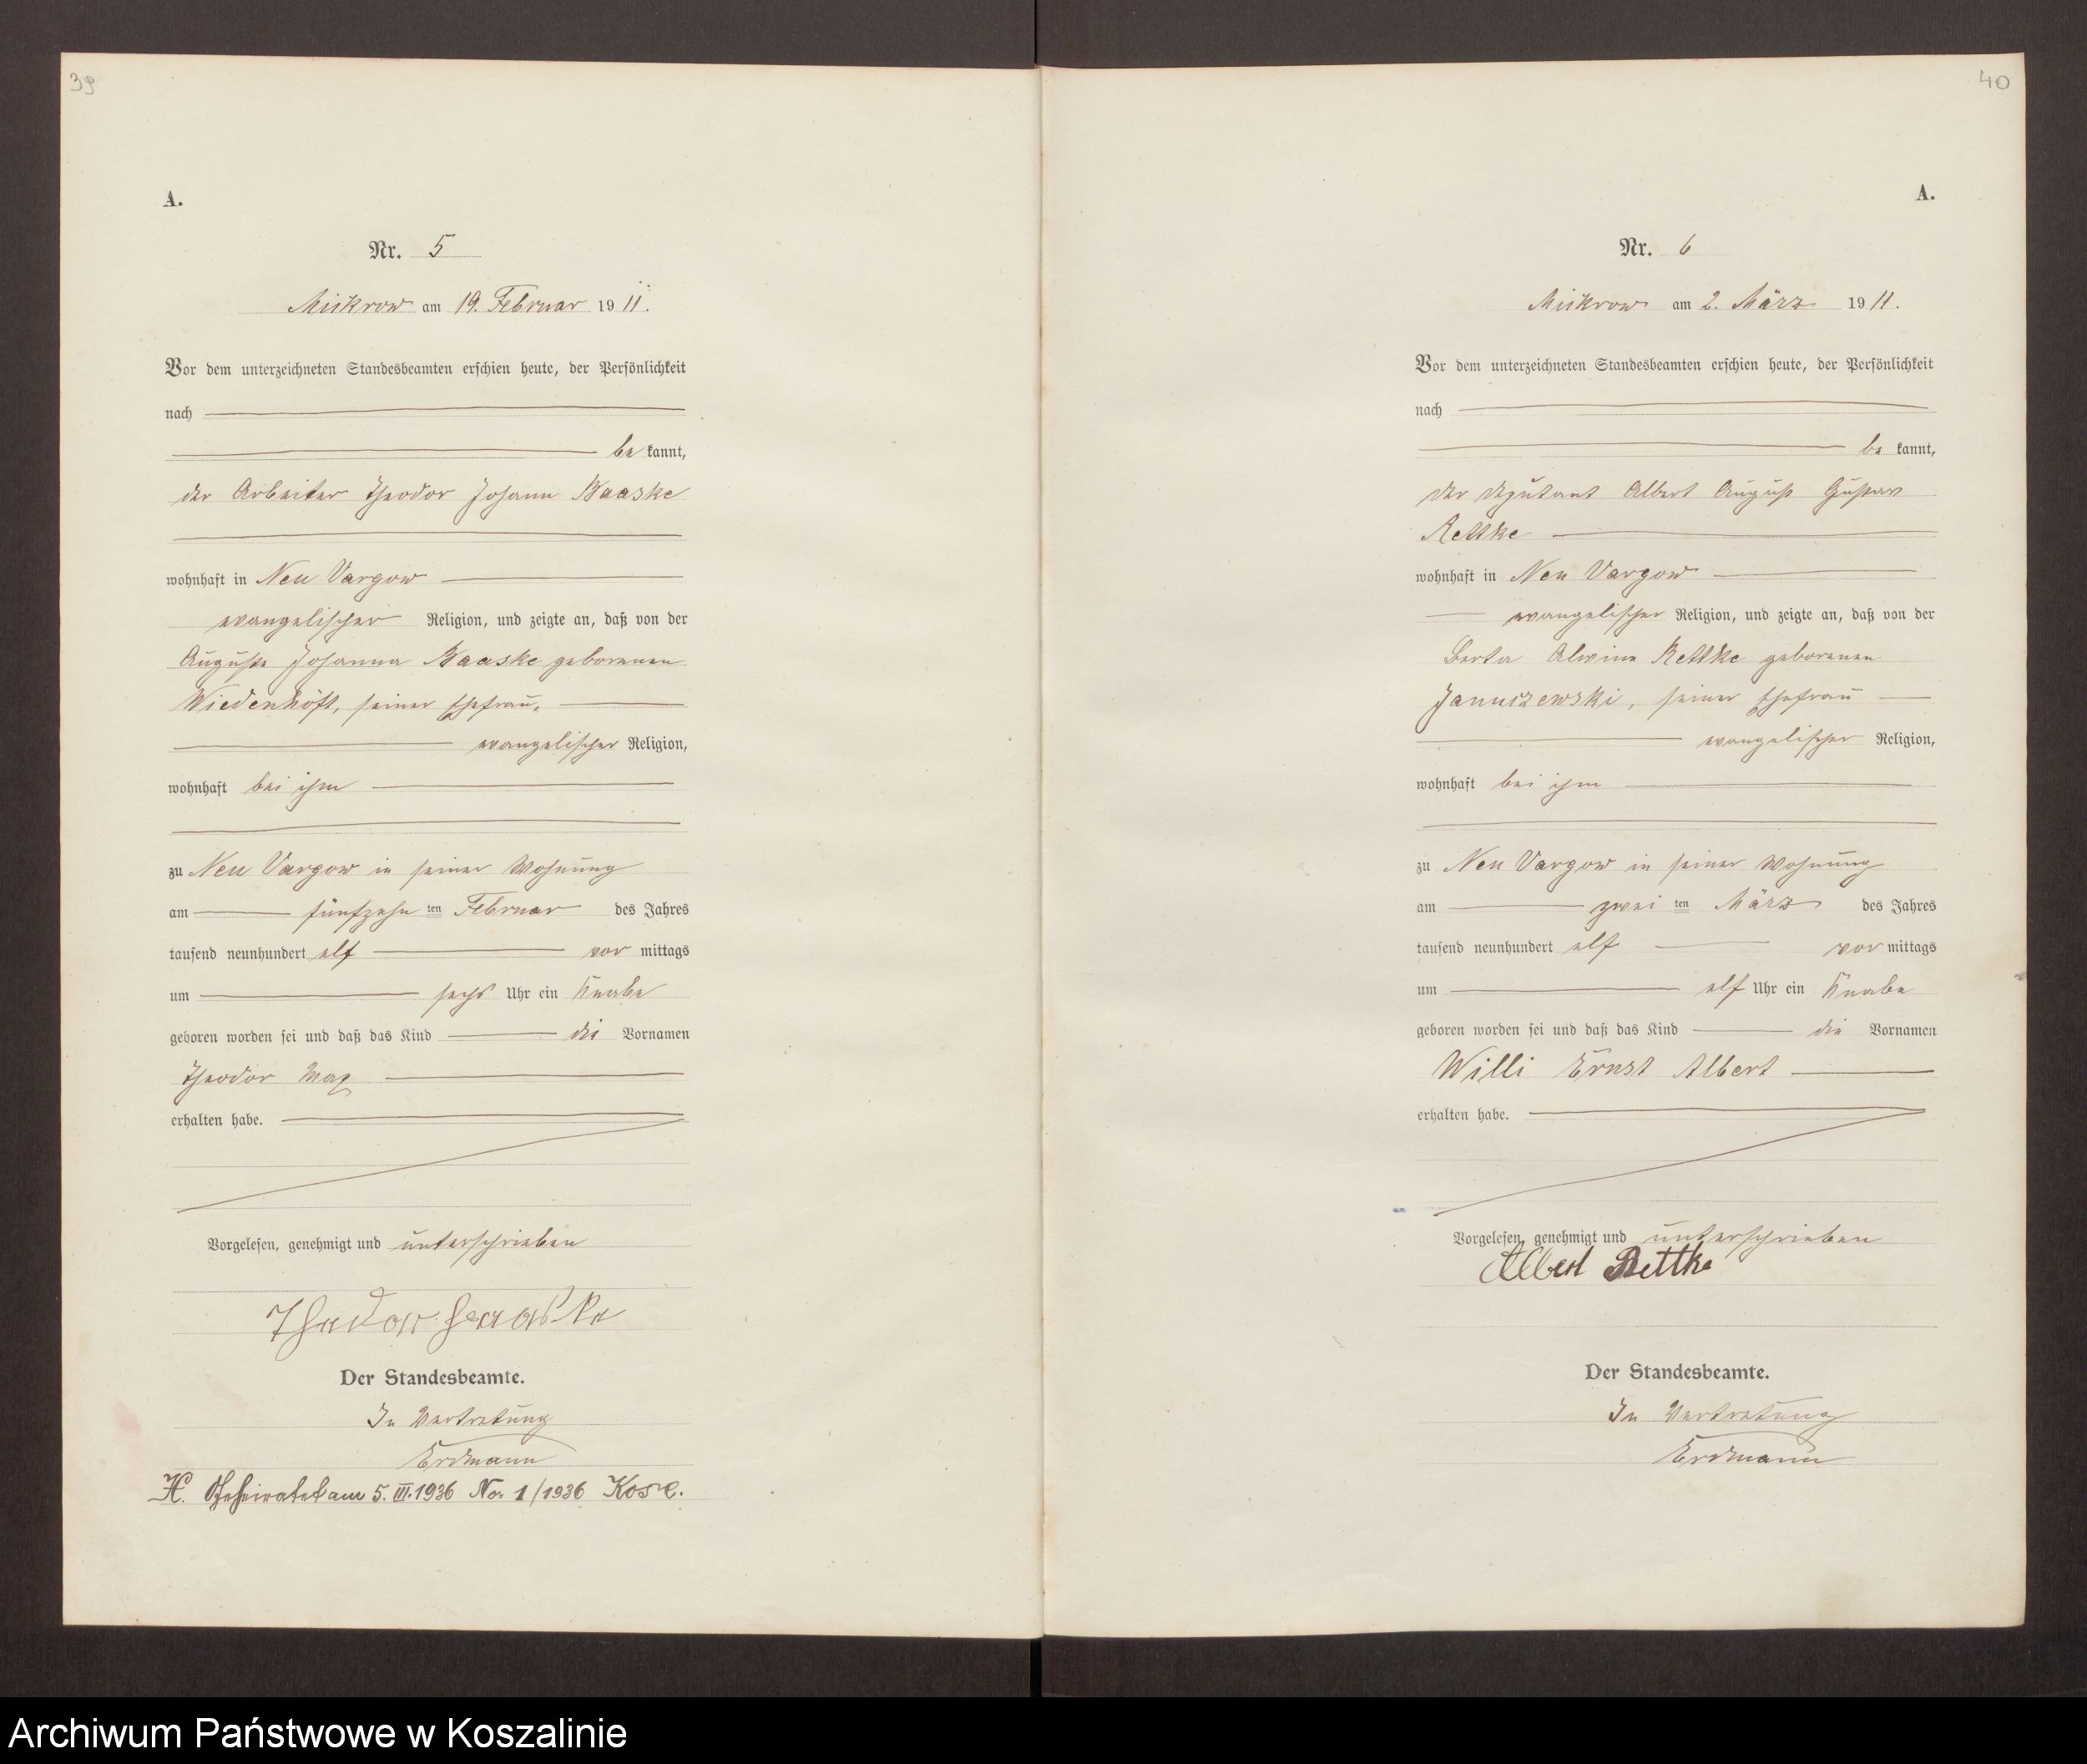 39
A.
Nr. 5
Mickrow am 19. Februar 1911.
Vor dem unterzeichneten Standesbeamten erschien heute, der Persönlichkeit
nach
be kannt,
der Arbeiter Theodor Johann Kaaske
wohnhaft in Neu Vargow
evangelischer Religion, und zeigte an, daß von der
Auguste Johanna Kaaske geborenen
Wiedenhöft, seiner Ehefrau,
evangelischer Religion,
wohnhaft bei ihm
zu Neu Vargow in seiner Wohnung
am fünfzehn ten Februar des Jahres
tausend neunhundert elf vor mittags
um sechs Uhr ein Knabe
geboren worden sei und daß das Kind die Vornamen
Theodor Max
erhalten habe.
Vorgelesen, genehmigt und unterschrieben
Der Standesbeamte.
In Vertretung
Erdmann
H. Geheiratet am 5. III. 1936 No. 1/1936 Kose.
40
A.
Nr. 6
Mickrow am 2. März 1911.
Vor dem unterzeichneten Standesbeamten erschien heute, der Persönlichkeit
nach
be kannt,
der Deputant Albert August Gustav
Rettke
wohnhaft in Neu Vargow
evangelischer Religion, und zeigte an, daß von der
Berta Alwine Rettke geborenen
Januszewski, seiner Ehefrau
evangelischer Religion,
wohnhaft bei ihm
zu Neu Vargow in seiner Wohnung
am zwei ten März des Jahres
tausend neunhundert elf vor mittags
um elf Uhr ein Knabe
geboren worden sei und daß das Kind die Vornamen
Willi Ernst Albert
erhalten habe.
Vorgelesen, genehmigt und unterschrieben
Albert Rettke
Der Standesbeamte.
In Vertretung
Erdmann
Archiwum Państwowe w Koszalinie